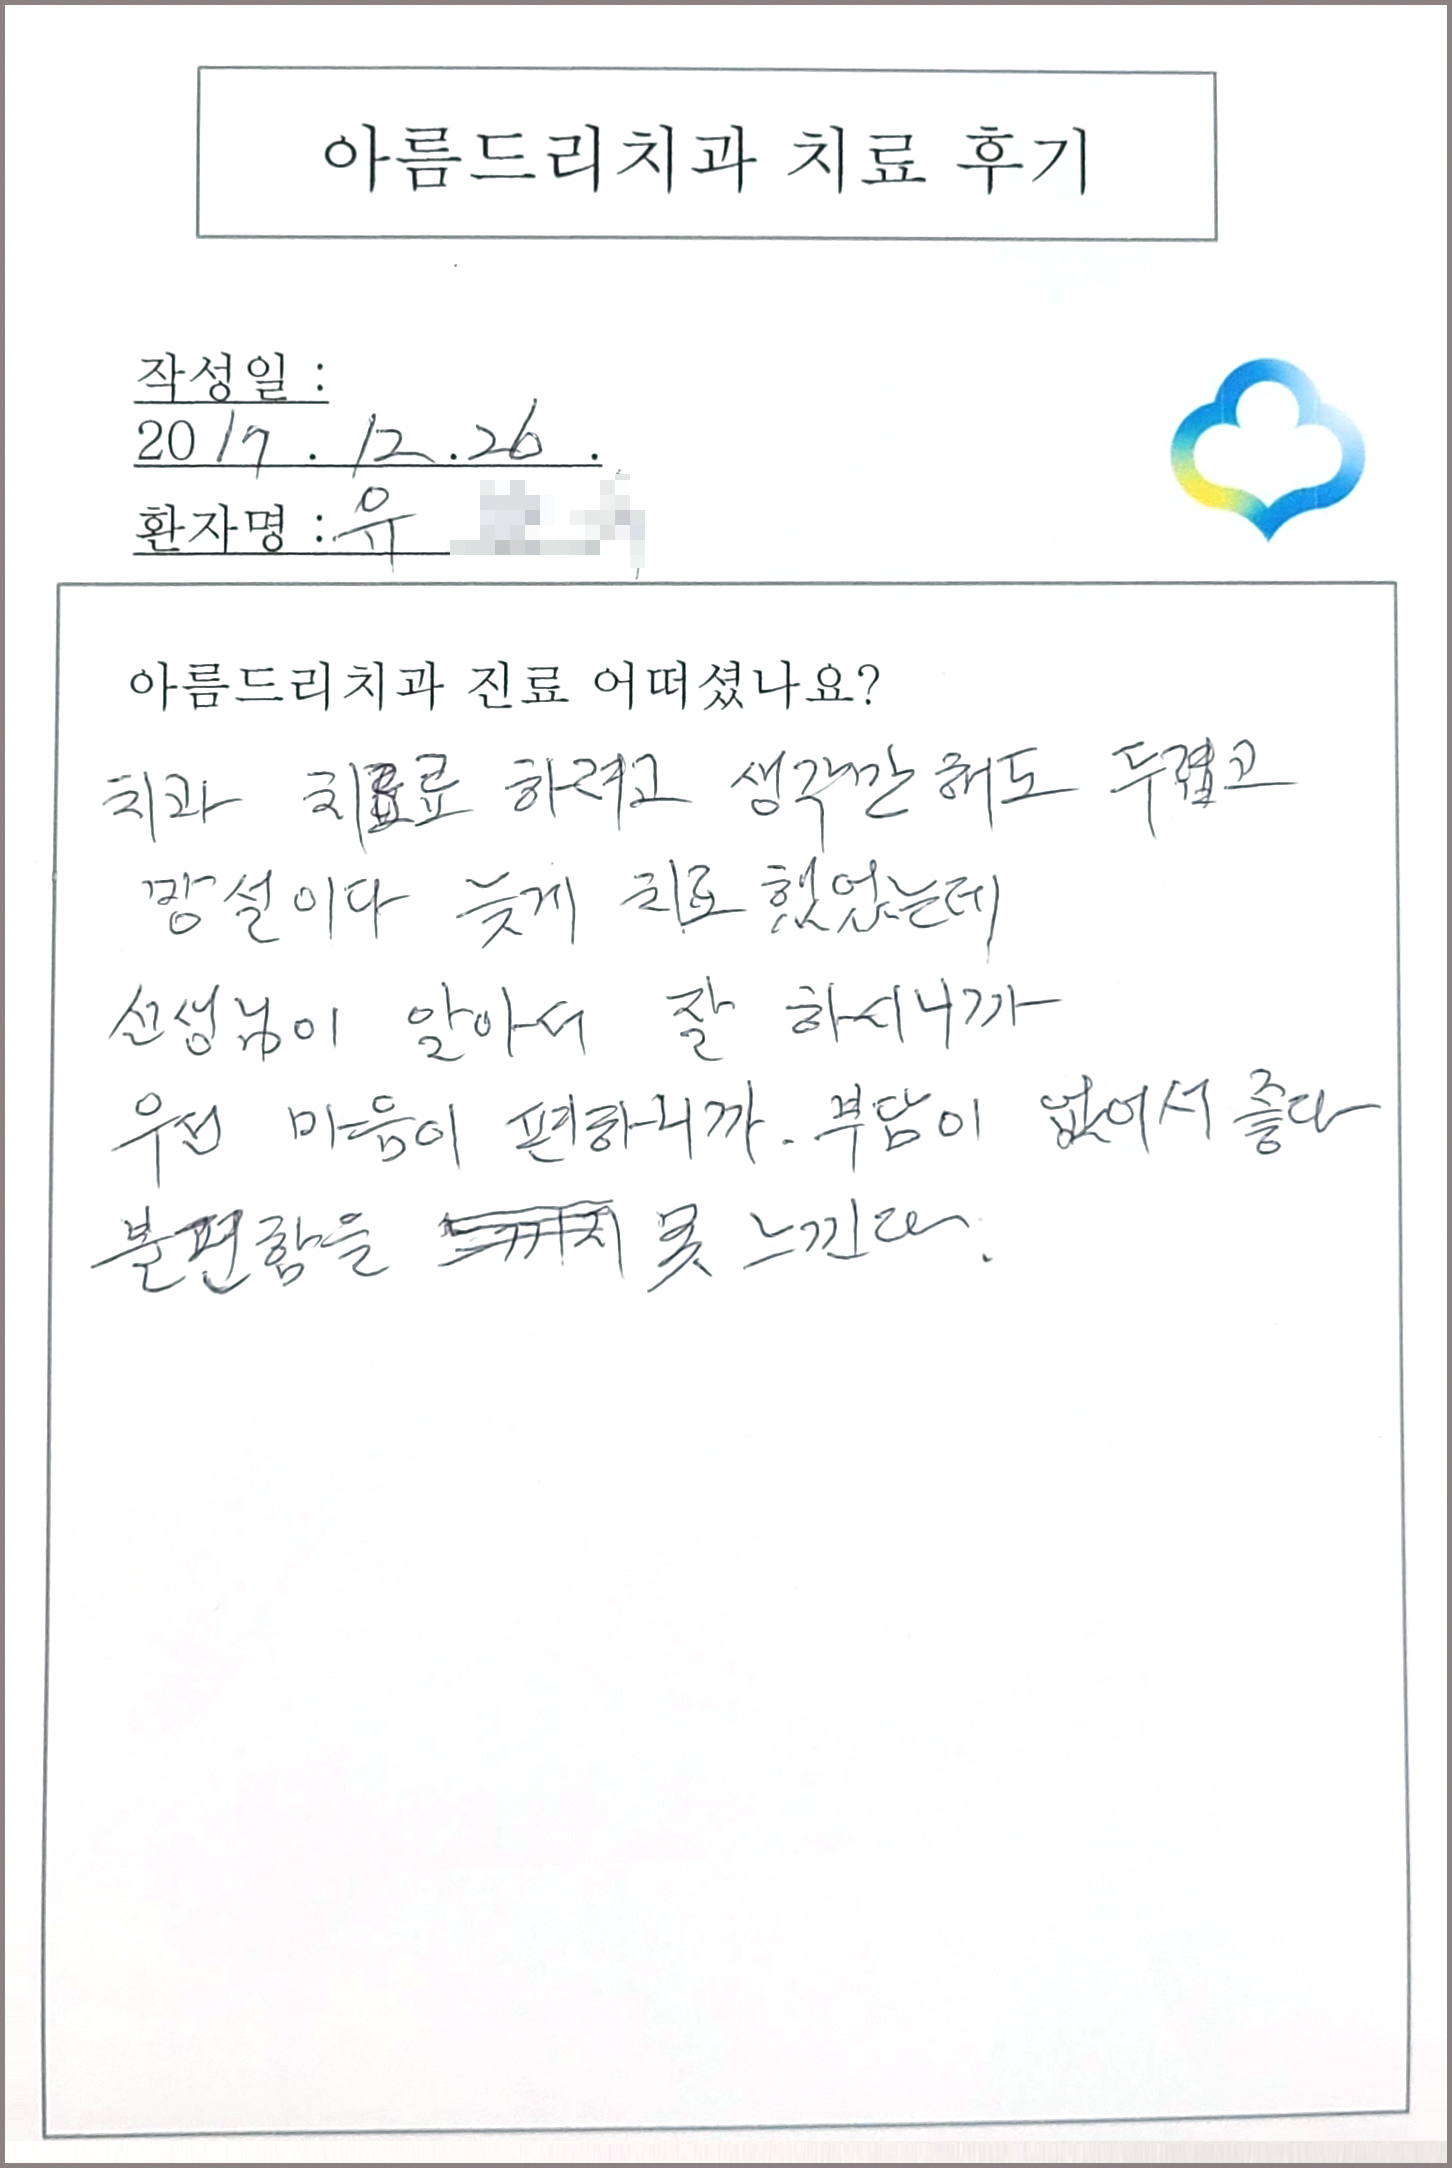 아름드리치과 치료 후기
작성일 :
2017 . 12 . 26 .
환자명 : 유
아름드리치과 진료 어떠셨나요?
치과 치료 하려고 생각만해도 두렵고
망설이다 늦게 치료했었는데
선생님이 알아서 잘 하시니까
우선 마음이 편하니까. 부담이 없어서 좋다
불편함을 못 느낀다.